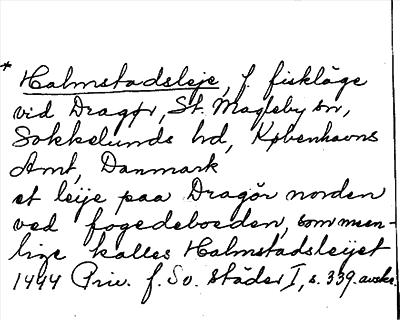 * Halmstadsleje, f. fiskläge
vid Dragør, St. Magleby sn,
Sokkelunds hd, Københavns
Amt, Danmark
et leije paa Dragör norden
ved fogedeboeden, som meen-
lige kalles Halmstadsleijet
1444 Priv. f. Sv. städer I, s. 339. avskr.